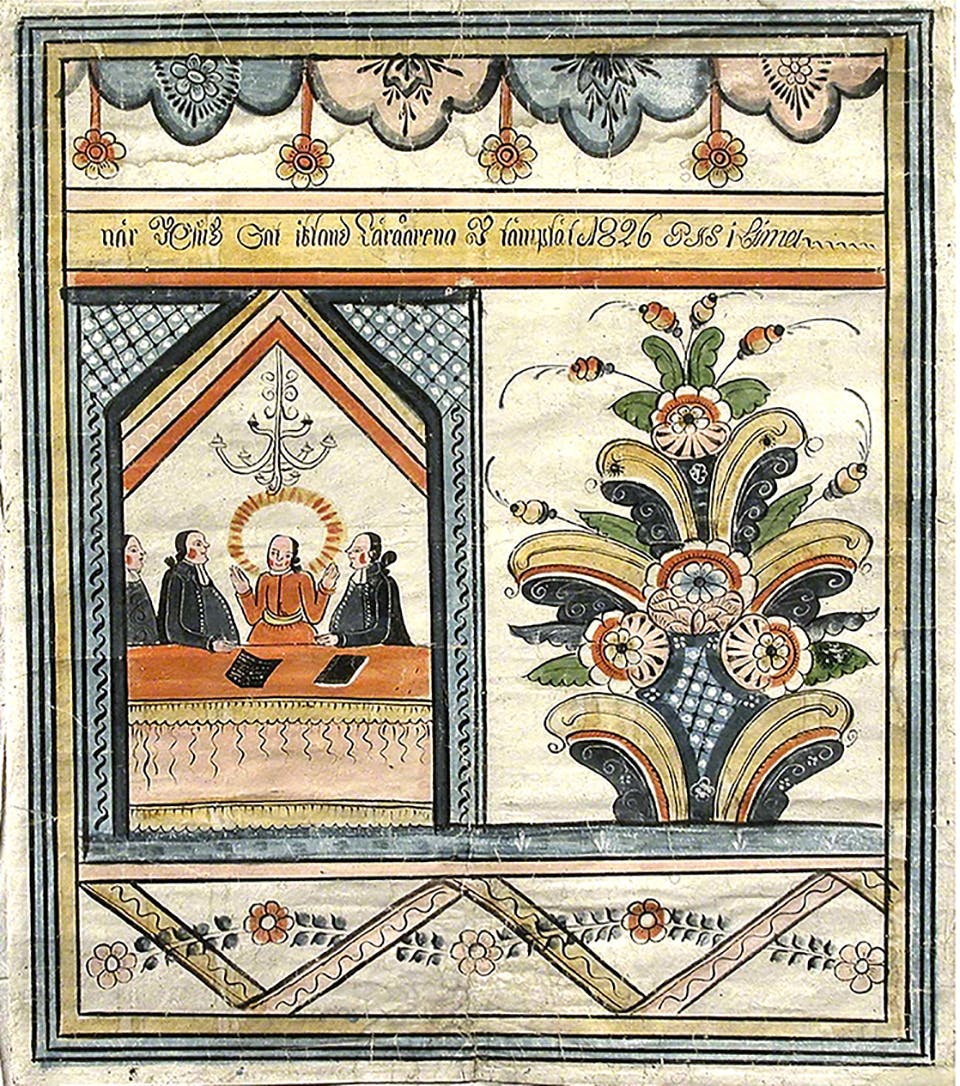 når JEsus Sat ibland Läråarena I tämplät 1826 PIS i Lima